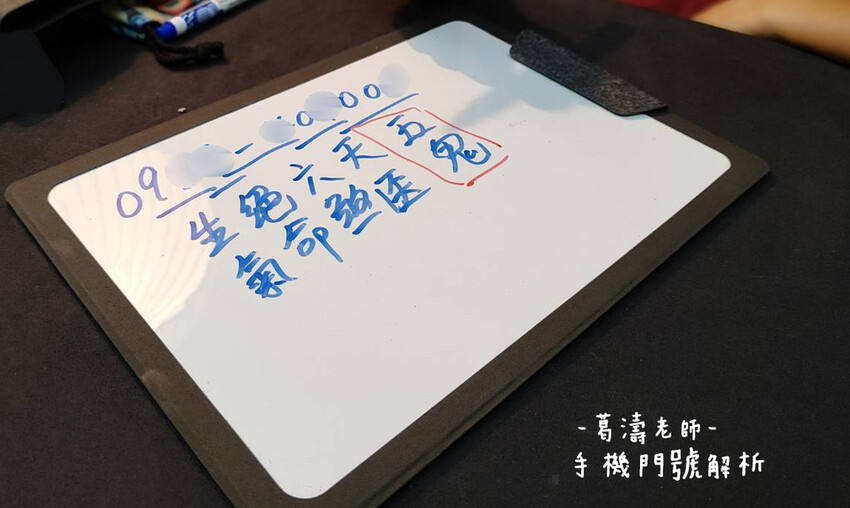 09 - 0 00
生氣
絕命
六煞
天医
五鬼
-葛濤老師-
手機門號解析